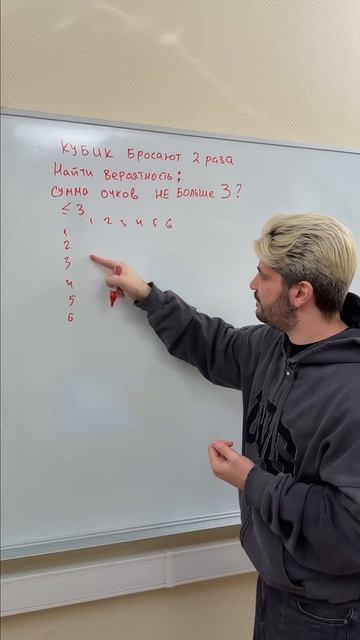 КУБИК Бросают 2 раза
Найти вероятность:
Сумма очков НЕ Больше 3?
≤ 3
1 2 3 4 5 6
1
2
3
4
5
6